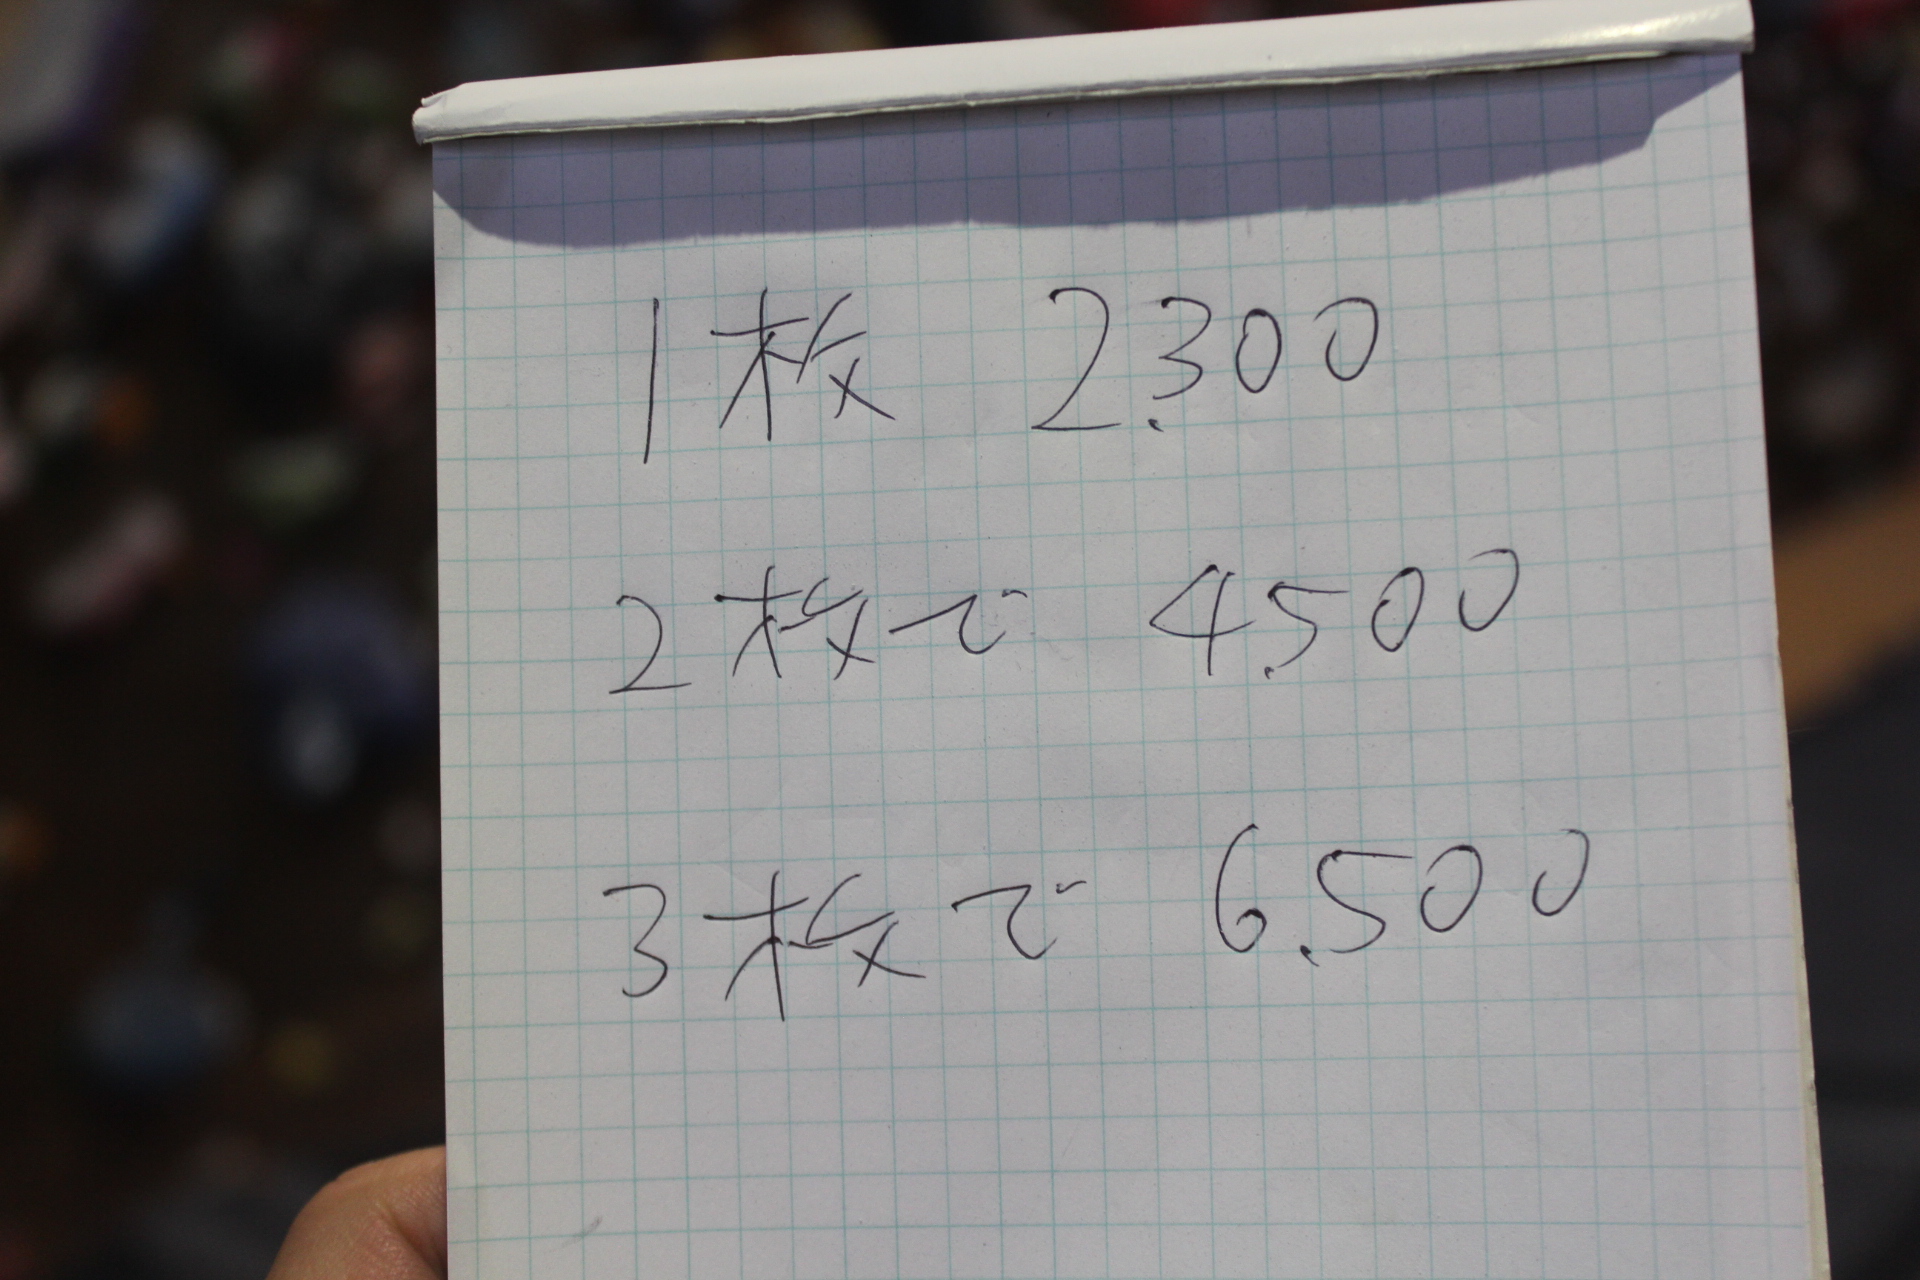 1枚 2.300
2枚で 4.500
3枚で 6.500